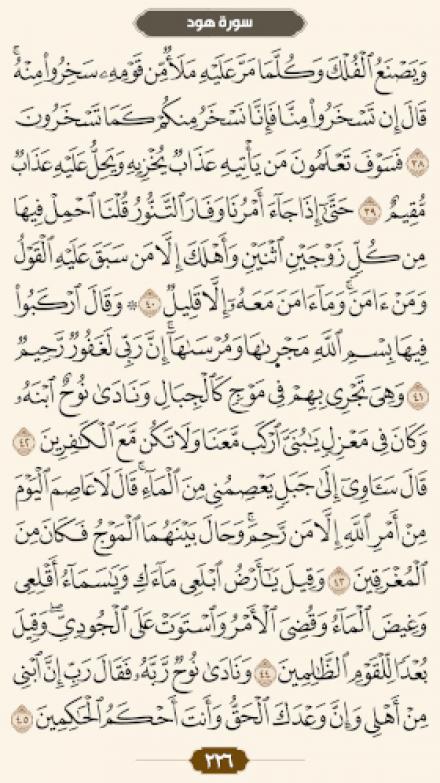 سورة هود
وَيَصْنَعُ ٱلْفُلْكَ وَكُلَّمَا مَرَّ عَلَيْهِ مَلَأٌ مِّن قَوْمِهِۦ سَخِرُوا۟ مِنْهُ ۚ
قَالَ إِن تَسْخَرُوا۟ مِنَّا فَإِنَّا نَسْخَرُ مِنكُمْ كَمَا تَسْخَرُونَ
٣٨ فَسَوْفَ تَعْلَمُونَ مَن يَأْتِيهِ عَذَابٌ يُخْزِيهِ وَيَحِلُّ عَلَيْهِ عَذَابٌ
مُّقِيمٌ ٣٩ حَتَّىٰٓ إِذَا جَآءَ أَمْرُنَا وَفَارَ ٱلتَّنُّورُ قُلْنَا ٱحْمِلْ فِيهَا
مِن كُلٍّ زَوْجَيْنِ ٱثْنَيْنِ وَأَهْلَكَ إِلَّا مَن سَبَقَ عَلَيْهِ ٱلْقَوْلُ
وَمَنْ ءَامَنَ ۚ وَمَآ ءَامَنَ مَعَهُۥٓ إِلَّا قَلِيلٌ ٤٠ ۞ وَقَالَ ٱرْكَبُوا۟
فِيهَا بِسْمِ ٱللَّهِ مَجْر۪ىٰهَا وَمُرْسَىٰهَآ ۚ إِنَّ رَبِّى لَغَفُورٌ رَّحِيمٌ
٤١ وَهِىَ تَجْرِى بِهِمْ فِى مَوْجٍ كَٱلْجِبَالِ وَنَادَىٰ نُوحٌ ٱبْنَهُۥ
وَكَانَ فِى مَعْزِلٍ يَٰبُنَىَّ ٱرْكَب مَّعَنَا وَلَا تَكُن مَّعَ ٱلْكَٰفِرِينَ ٤٢
قَالَ سَـَٔاوِىٓ إِلَىٰ جَبَلٍ يَعْصِمُنِى مِنَ ٱلْمَآءِ ۚ قَالَ لَا عَاصِمَ ٱلْيَوْمَ
مِنْ أَمْرِ ٱللَّهِ إِلَّا مَن رَّحِمَ ۚ وَحَالَ بَيْنَهُمَا ٱلْمَوْجُ فَكَانَ مِنَ
ٱلْمُغْرَقِينَ ٤٣ وَقِيلَ يَٰٓأَرْضُ ٱبْلَعِى مَآءَكِ وَيَٰسَمَآءُ أَقْلِعِى
وَغِيضَ ٱلْمَآءُ وَقُضِىَ ٱلْأَمْرُ وَٱسْتَوَتْ عَلَى ٱلْجُودِىِّ ۖ وَقِيلَ
بُعْدًا لِّلْقَوْمِ ٱلظَّٰلِمِينَ ٤٤ وَنَادَىٰ نُوحٌ رَّبَّهُۥ فَقَالَ رَبِّ إِنَّ ٱبْنِى
مِنْ أَهْلِى وَإِنَّ وَعْدَكَ ٱلْحَقُّ وَأَنتَ أَحْكَمُ ٱلْحَٰكِمِينَ ٤٥
٢٢٦